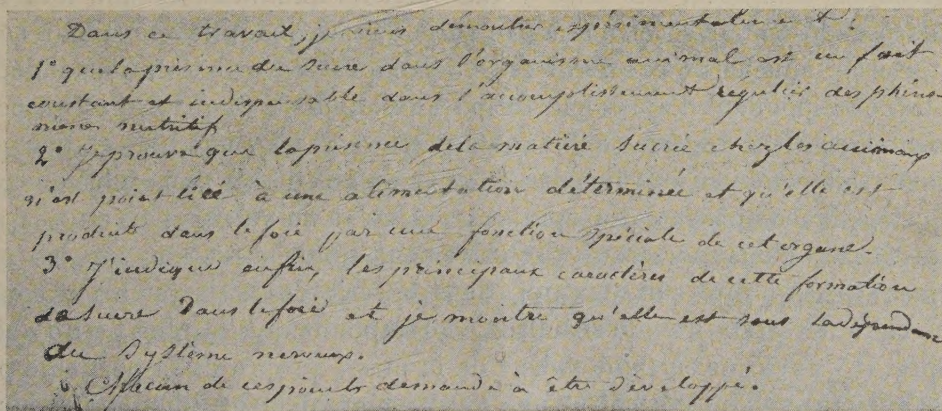 Dans ce travail, je vais démontrer expérimentalement:
1° que la présence du sucre dans l'organisme animal est un fait
constant et indispensable dans l'accomplissement régulier des phéno-
mènes nutritifs
2° Je prouve que la présence de la matière sucrée chez les animaux
n'est point liée à une alimentation déterminée et qu'elle est
produite dans le foie par une fonction spéciale de cet organe.
3° J'indique enfin, les principaux caractères de cette formation
de sucre dans le foie et je montre qu'elle est sous la dépendance
du Système nerveux.
Chacun de ces points demande à être développé.